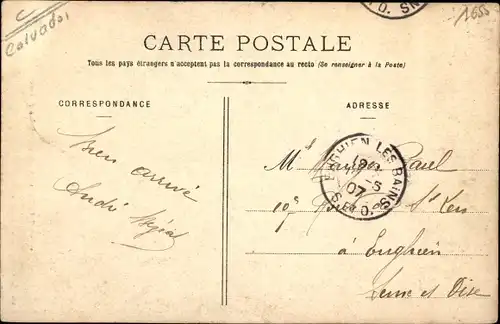 C
Calvados
1655
CARTE POSTALE
Tous les pays étrangers n'acceptent pas la correspondance au recto (Se renseigner à la Poste)
CORRESPONDANCE
ADRESSE
Bien arrivé
André
ENGHIEN LES BAINS
07
S. ET O.
Paul
à Enghien
Seine et Oise